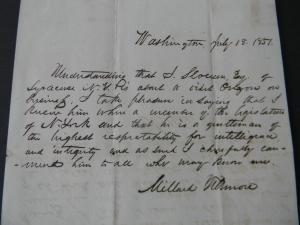 Washington July 18. 1851.
Understanding that S. Sloven Esq. of
Syracuse N.Y. is about to visit Oregon on
business, I take pleasure in saying that I
knew him when a member of the legislature
of N. York and that he is a gentleman of
the highest respectability for intelligence
and integrity and as such I cheerfully com-
mend him to all who may know me.
Millard Fillmore